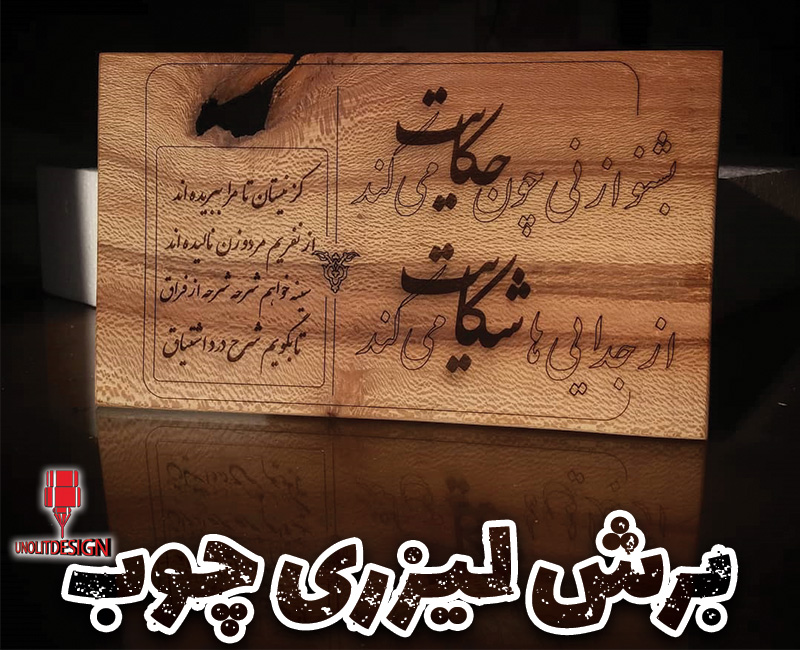 بشنو از نی چون حکایت می کند
از جدایی ها شکایت می کند
کز نیستان تا مرا ببریده اند
از نفیرم مرد و زن نالیده اند
سینه خواهم شرحه شرحه از فراق
تا بگویم شرح درد اشتیاق
UNOLITDESIGN
برش لیزری چوب